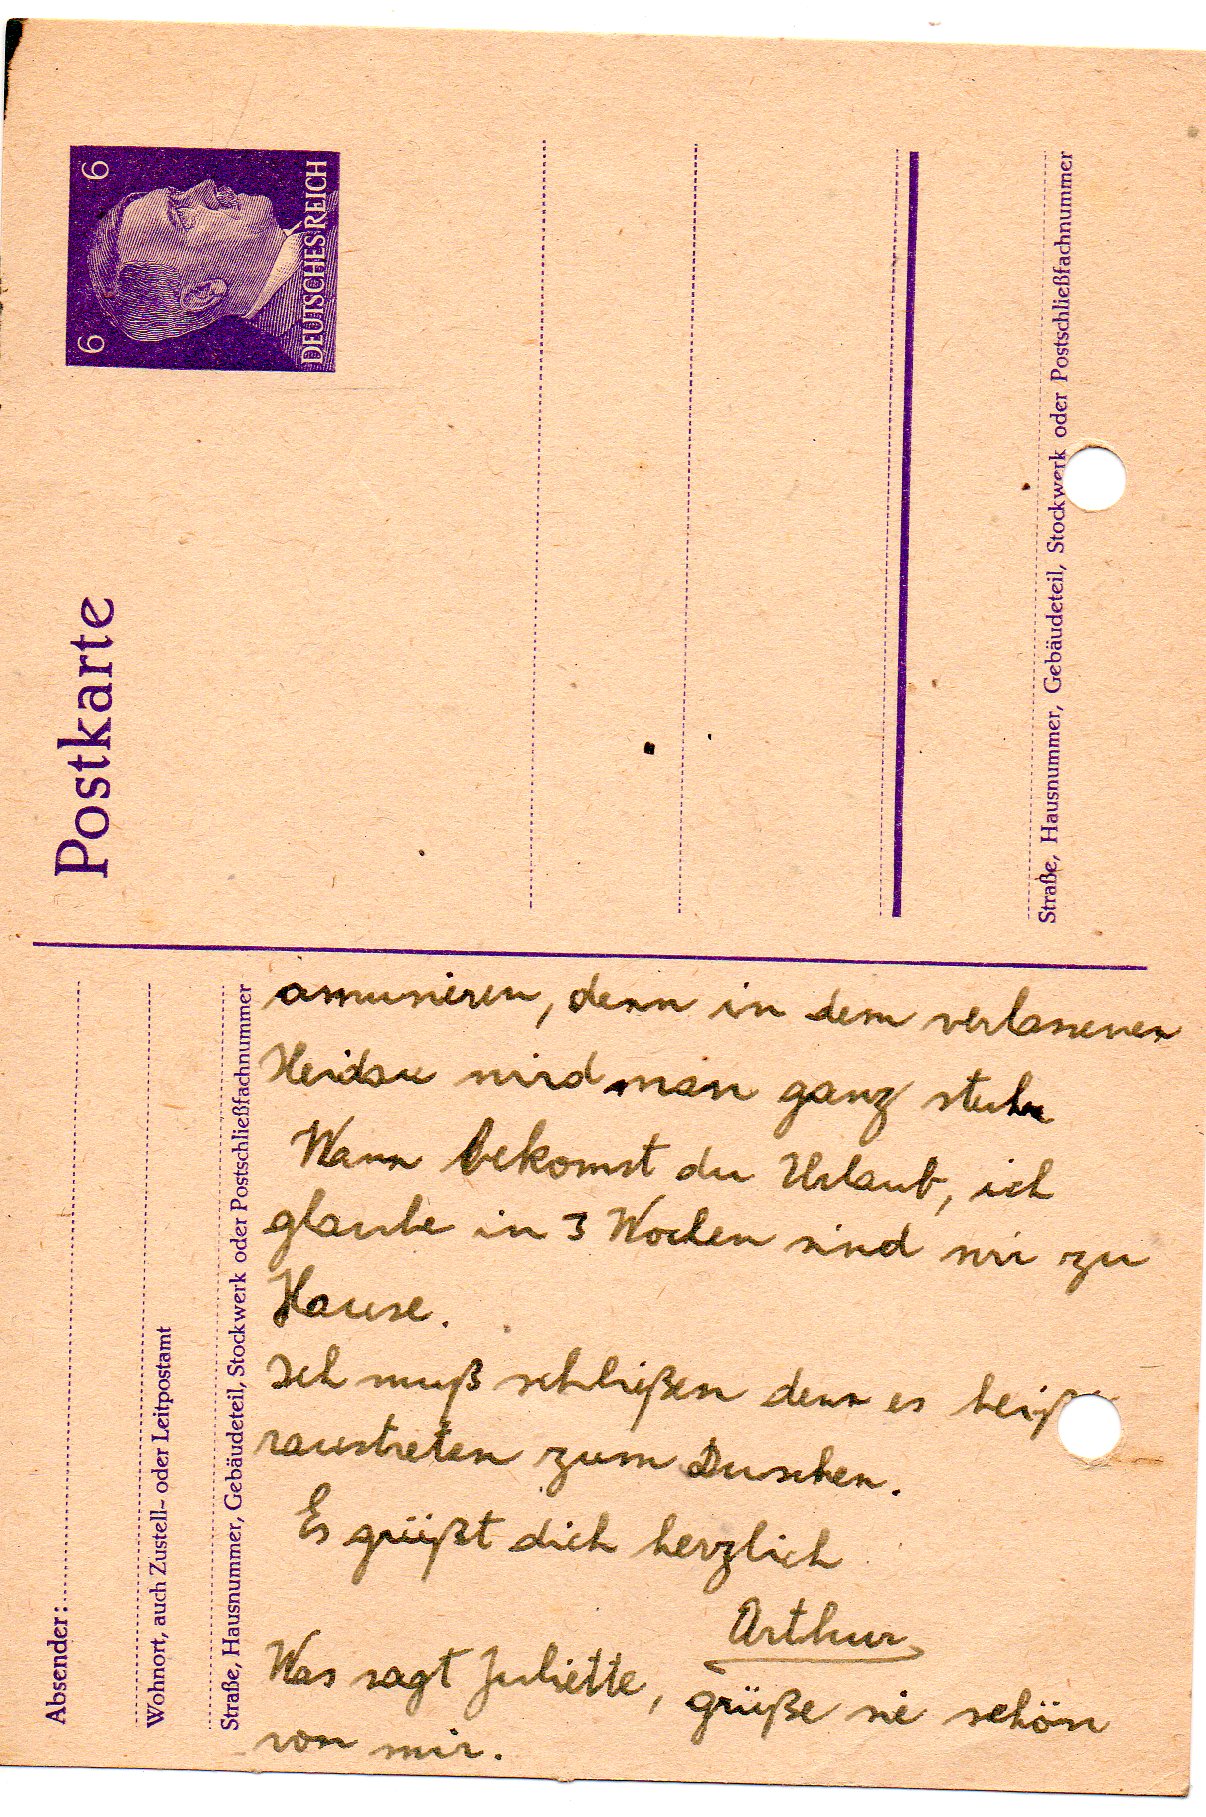 6 6
DEUTSCHES REICH
Postkarte
Straße, Hausnummer, Gebäudeteil, Stockwerk oder Postschließfachnummer
Absender:
Wohnort, auch Zustell- oder Leitpostamt
Straße, Hausnummer, Gebäudeteil, Stockwerk oder Postschließfachnummer
amusieren, denn in dem verlassenen
wird man ganz
Wann bekomst du Urlaub, ich
glaube in 3 Wochen sind wir zu
Hause.
Ich muß schließen denn es heiß
raustreten zum Duschen.
Es grüßt dich herzlich
Arthur
Was sagt Juliette, grüße sie schön
von mir.